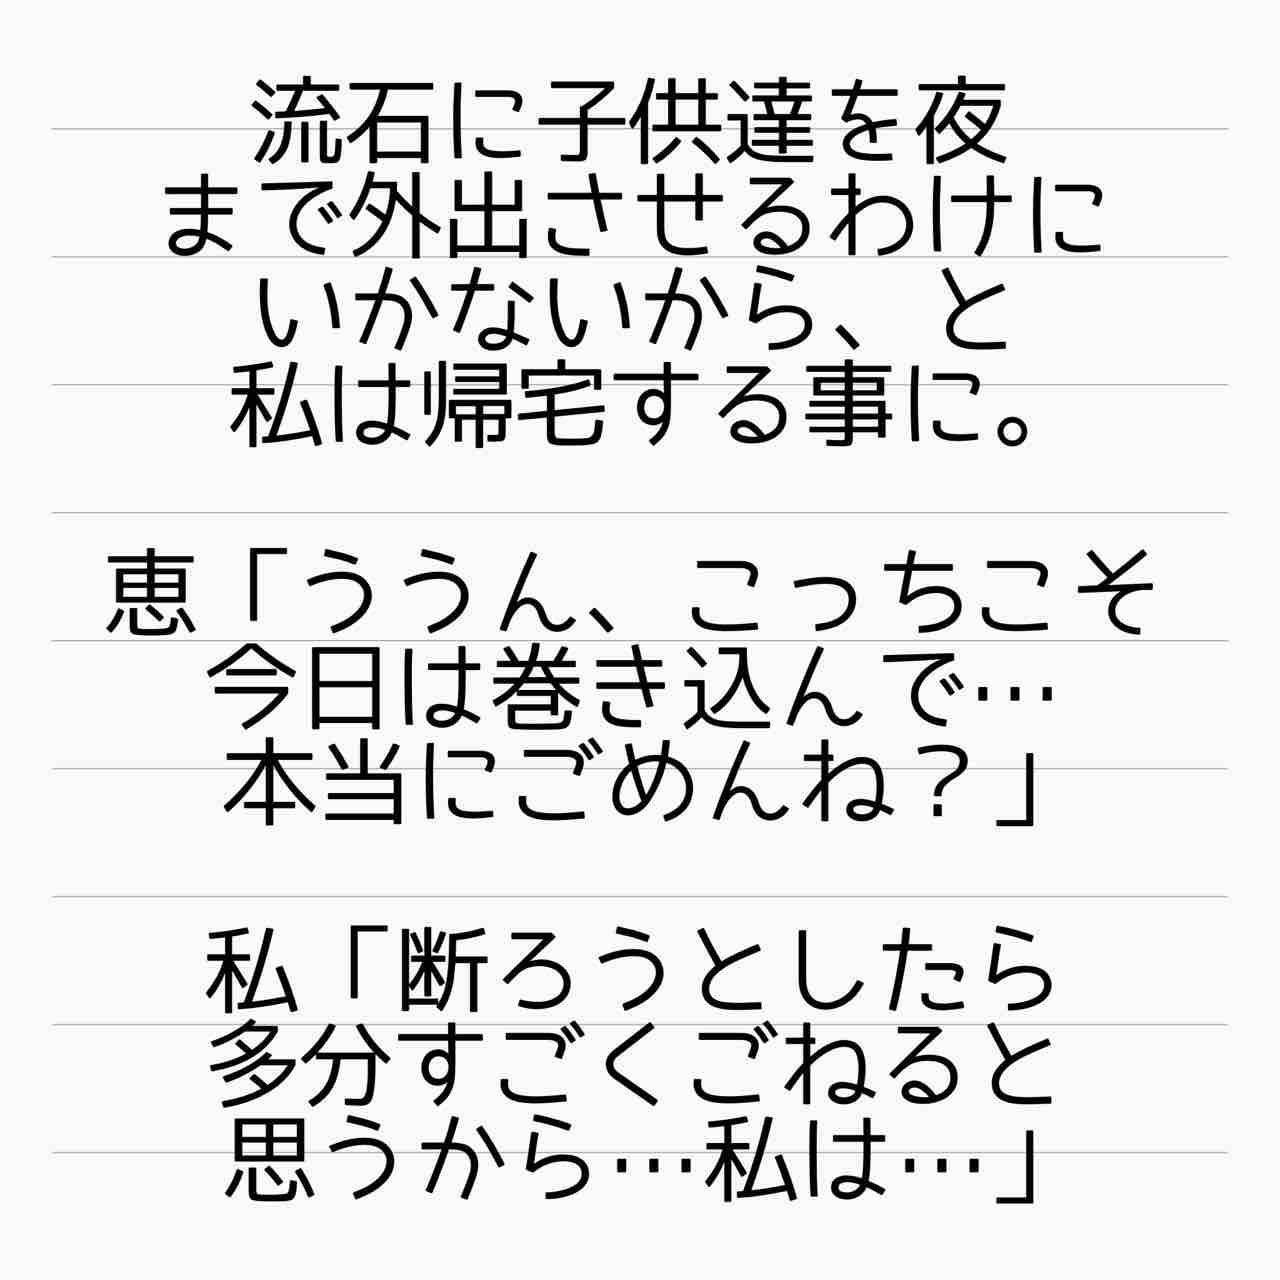 流石に子供達を夜
まで外出させるわけに
いかないから、と
私は帰宅する事に。
恵「ううん、こっちこそ
今日は巻き込んで…
本当にごめんね？」
私「断ろうとしたら
多分すごくごねると
思うから…私は…」